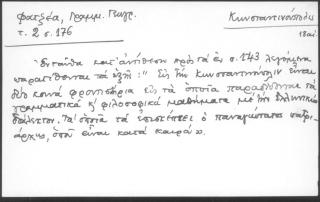 Φατζέα, Γραμμ. Γεωγρ.
τ. 2 σ. 176
Κωνσταντινούπολις
18 αἰ.
Ἐνταῦθα κατ' ἀντίθεσιν πρὸς τὰ ἐν σ. 143 λεγόμενα
παρατίθενται τὰ ἑξῆς: " Εἰς τὴν Κωνσταντινούπολιν εἶναι
δύο κοινὰ φροντιστήρια εἰς τὰ ὁποῖα παραδίδονται τὰ
γραμματικὰ κ φιλοσοφικὰ μαθήματα μὲ τὴν Ἑλληνικὴν
διάλεκτον. Τὰ ὁποῖα τὰ ἐπισκέπτει ὁ παναγιώτατος πατρι-
άρχης, ὁποῦ εἶναι κατὰ καιρὸν.